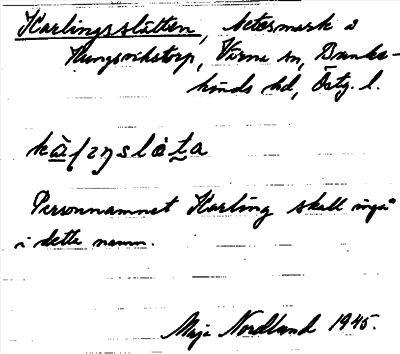 Karlingsslätten, betesmark å
Kungsvikstorp, Värna sn, Banke-
kinds hd, Östg. l.
Personnamnet Karling skall ingå
i detta namn.
Maja Nordlund 1945.